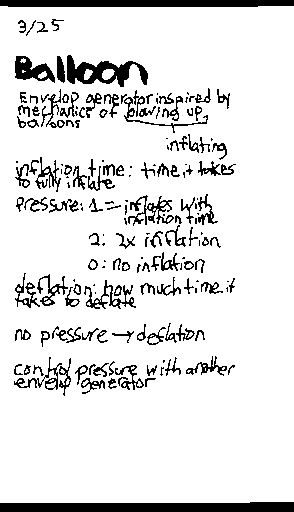 3/25
Balloon
Envelop generator inspired by
mechanics of blowing up
balloons
inflating
inflation time: time it takes
to fully inflate
Pressure: 1 = inflates with
inflation time
2: 2x inflation
0: no inflation
deflation: how much time it
takes to deflate
no pressure → deflation
control pressure with another
envelop generator